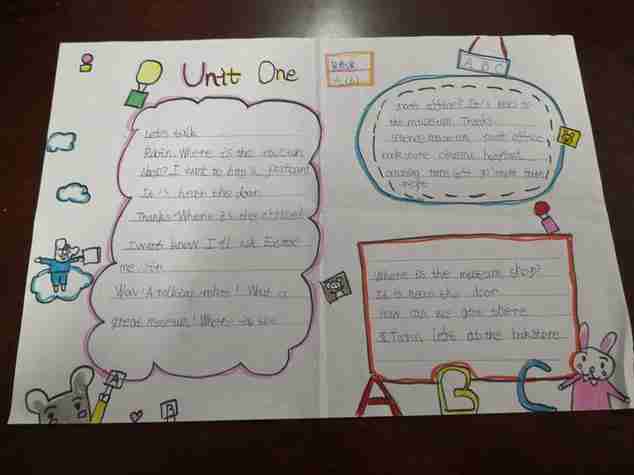 Unit One
Let's talk
Robin. Where is the museum
shop? I want to buy a postcard
It is near the door
Thanks. Where is the
I don't know I'll ask Excuse
me sir
Wow! A talking robot! What a
great museum! Where is the
A B C
post office? It's next to
the museum. Thanks.
science museum post office
bookstore cinema hospital
crossing turn left go straight turn
right
Where is the museum shop?
It is near the door
How can we get there
Turn left at the bookstore
A B C
A
B